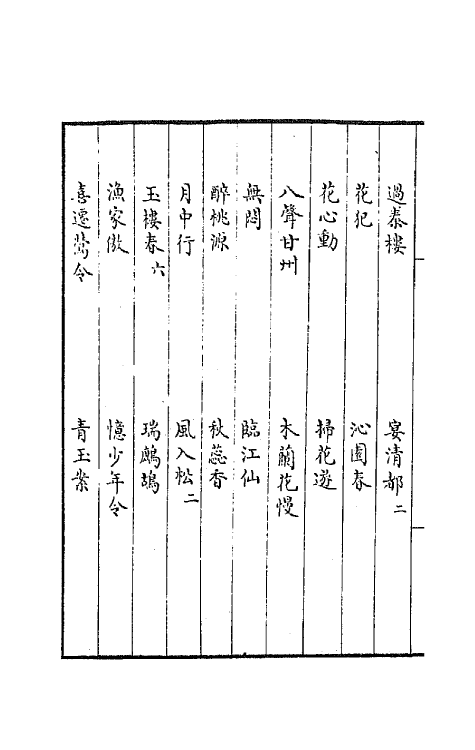 過秦樓　宴清都二
花犯　沁園春
花心動　掃花遊
八聲甘州　木蘭花慢
無悶　臨江仙
醉桃源　秋蕊香
月中行　風入松二
玉樓春六　瑞鷓鴣
漁家傲　憶少年令
喜遷鶯令　青玉案